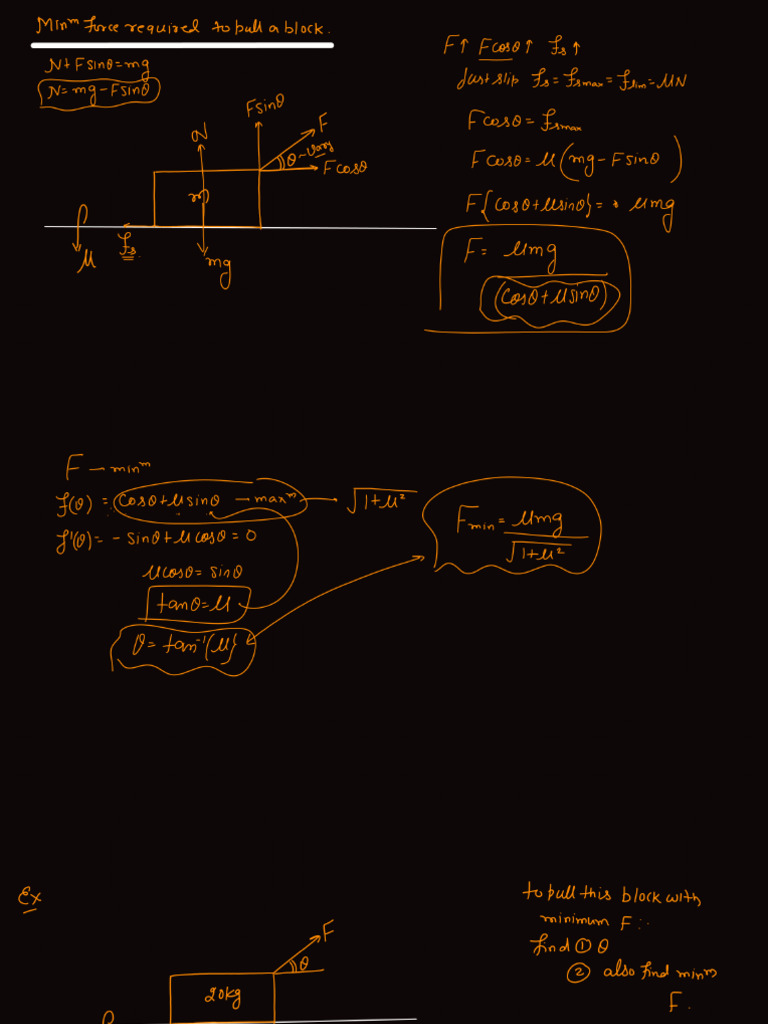 Minᵐ force required to pull a block.
N+Fsinθ=mg
N=mg-Fsinθ
Fsinθ
F
N
θ~vary
Fcosθ
m
fs
μ
mg
F↑ Fcosθ↑ fs↑
Just slip fs=fsmax=fslim=μN
Fcosθ=fsmax
Fcosθ=μ(mg-Fsinθ)
F{cosθ+μsinθ}= μmg
F= μmg
(cosθ+μsinθ)
F - minᵐ
f(θ) = cosθ+μsinθ - maxᵐ → √1+μ²
f'(θ)= - sinθ+μcosθ=0
μcosθ=sinθ
tanθ=μ
θ=tan⁻¹(μ}
Fmin= μmg
√1+μ²
Ex
F
θ
20kg
to pull this block with
minimum F :.
find ① θ
② also find minm
F.